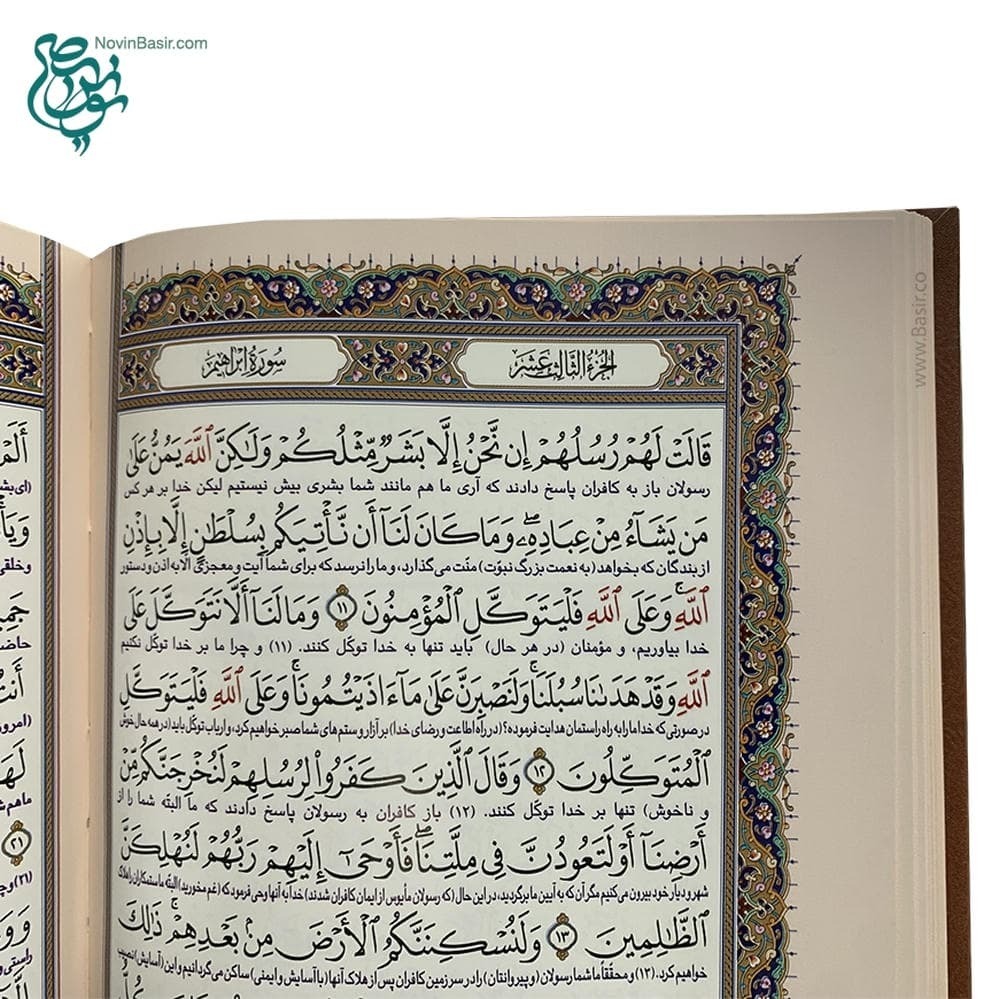 NovinBasir.com
www.Basir.co
الجزء الثالث عشر
سورة ابراهیم
قَالَتْ لَهُمْ رُسُلُهُمْ إِن نَّحْنُ إِلَّا بَشَرٌ مِّثْلُكُمْ وَلَٰكِنَّ اللَّهَ يَمُنُّ عَلَىٰ
رسولان باز به کافران پاسخ دادند که آری ما هم مانند شما بشری بیش نیستیم لیکن خدا بر هر کس
مَن يَشَاءُ مِنْ عِبَادِهِ ۖ وَمَا كَانَ لَنَا أَن نَّأْتِيَكُم بِسُلْطَانٍ إِلَّا بِإِذْنِ
از بندگان که بخواهد (به نعمت بزرگ نبوّت) منّت می‌گذارد، و ما را نرسد که برای شما آیت و معجزی الا به اذن و دستور
اللَّهِ ۚ وَعَلَى اللَّهِ فَلْيَتَوَكَّلِ الْمُؤْمِنُونَ ۝١١ وَمَا لَنَا أَلَّا نَتَوَكَّلَ عَلَى
خدا بیاوریم، و مؤمنان (در هر حال) باید تنها به خدا توکّل کنند. (۱۱) و چرا ما بر خدا توکّل نکنیم
اللَّهِ وَقَدْ هَدَانَا سُبُلَنَا ۚ وَلَنَصْبِرَنَّ عَلَىٰ مَا آذَيْتُمُونَا ۚ وَعَلَى اللَّهِ فَلْيَتَوَكَّلِ
در صورتی که خدا ما را به راه راستمان هدایت فرموده؟ (در راه اطاعت و رضای خدا) بر آزار و ستم های شما صبر خواهیم کرد، و ارباب توکّل باید (در همه حال خوش
الْمُتَوَكِّلُونَ ۝١٢ وَقَالَ الَّذِينَ كَفَرُوا لِرُسُلِهِمْ لَنُخْرِجَنَّكُم مِّنْ
و ناخوش) تنها بر خدا توکّل کنند. (۱۲) باز کافران به رسولان پاسخ دادند که ما البته شما را از
أَرْضِنَا أَوْ لَتَعُودُنَّ فِي مِلَّتِنَا ۖ فَأَوْحَىٰ إِلَيْهِمْ رَبُّهُمْ لَنُهْلِكَنَّ
شهر و دیار خود بیرون می کنیم مگر آن که به آیین ما برگردید، در این حال (که رسولان مأیوس از ایمان کافران شدند) خدا به آنها وحی فرمود که (غم مخورید) البته ما ستمکاران را هلاک
الظَّالِمِينَ ۝١٣ وَلَنُسْكِنَنَّكُمُ الْأَرْضَ مِن بَعْدِهِمْ ۚ ذَٰلِكَ
خواهیم کرد. (۱۳) و محققاً ما شما رسولان (و پیروانتان) را در سرزمین کافران پس از هلاک آنها (با آسایش و ایمنی) ساکن می گردانیم و این (آسایش) نصیب